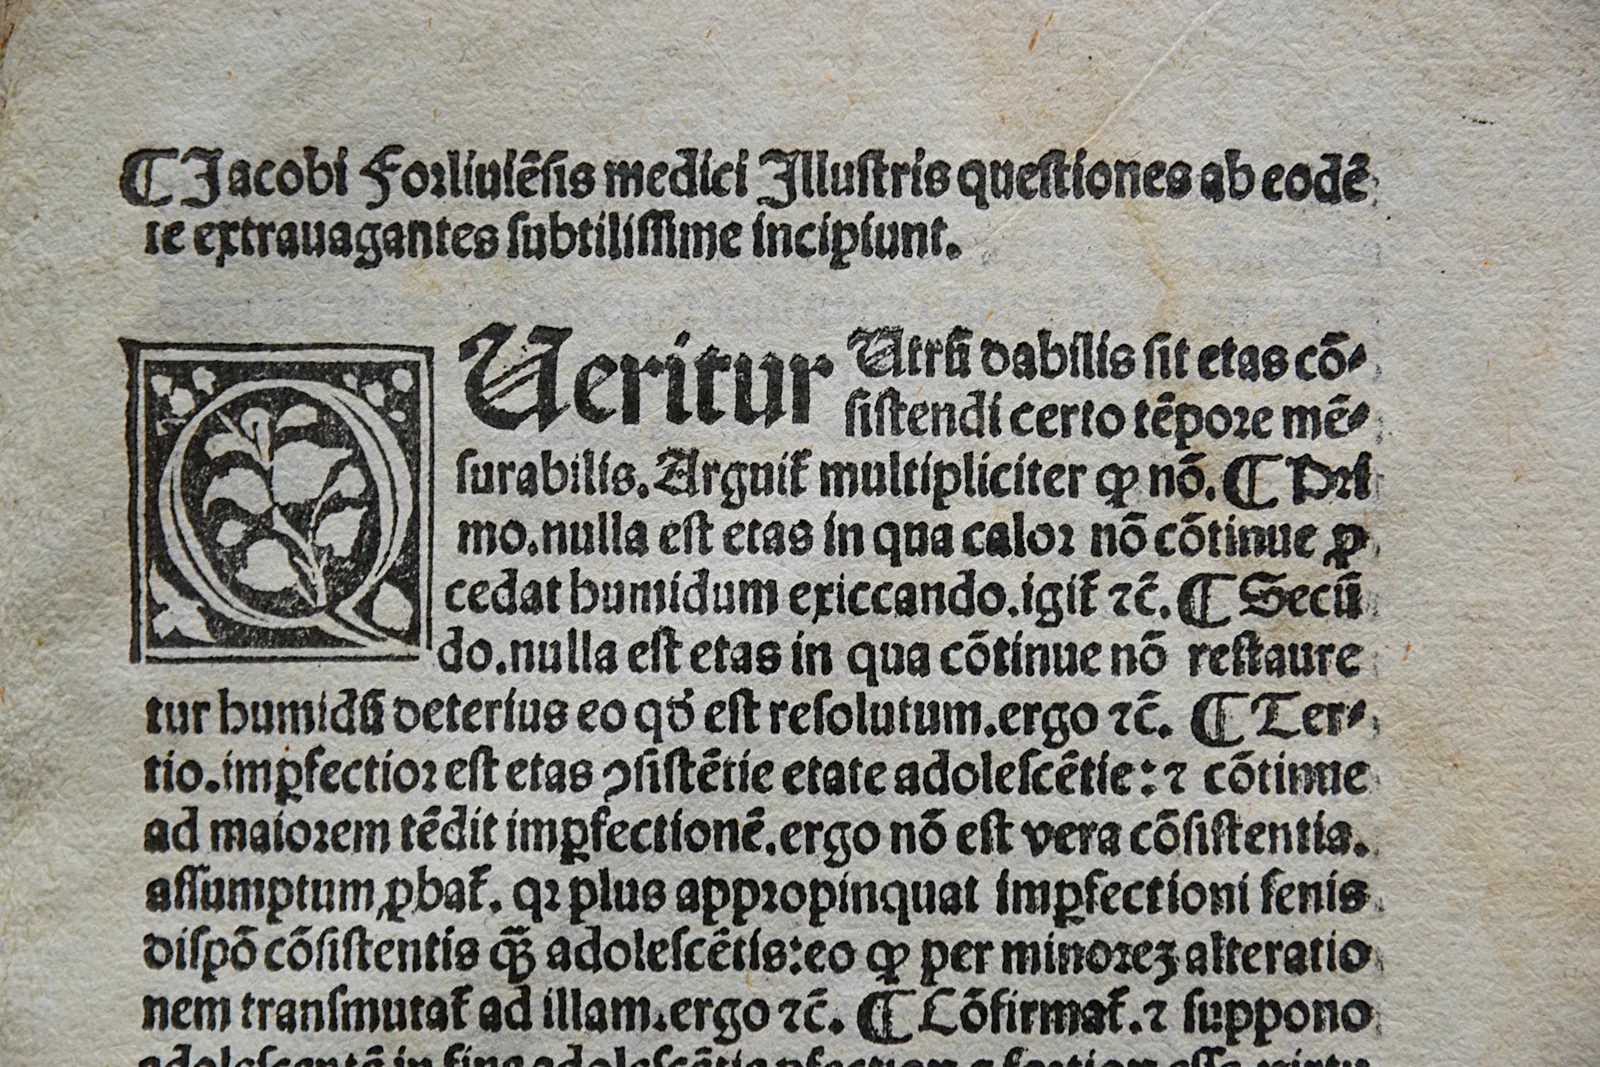 ¶ Jacobi Forliuiēſis medici Illuſtris queſtiones ab eodē
te extrauagantes ſubtiliſſime incipiunt.
QUeritur Utrū dabilis ſit etas cō⸗
ſiſtendi certo tēpore mē⸗
ſurabilis. Arguit᷑ multipliciter ꝙ nō. ¶ Pri
mo. nulla eſt etas in qua calor nō cōtinue ꝓ
cedat humidum exiccando. igit᷑ ⁊c̄. ¶ Secū
do. nulla eſt etas in qua cōtinue nō reſtaure
tur humidū deterius eo qd̓ eſt reſolutum. ergo ⁊c̄. ¶ Ter⸗
tio. imꝑfectior eſt etas ꝯſiſtētie etate adoleſcētie: ⁊ cōtinue
ad maiorem tēdit imꝑfectionē. ergo nō eſt vera cōſiſtentia.
aſſumptum ꝓbat᷑. qꝛ plus appropinquat imꝑfectioni ſenis
diſpō cōſiſtentis qȝ̄ adoleſcētis: eo ꝙ per minoreȝ alteratio
nem tranſmutat᷑ ad illam. ergo ⁊c̄. ¶ Cōfirmat᷑. ⁊ ſuppono